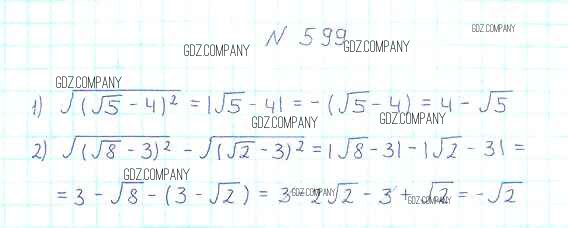 N 599
GDZ.COMPANY
GDZ.COMPANY
GDZ.COMPANY
GDZ.COMPANY
1) √(√5 - 4)² = |√5 - 4| = -(√5 - 4) = 4 - √5
GDZ.COMPANY
GDZ.COMPANY
2) √(√8 - 3)² - √(√2 - 3)² = |√8 - 3| - |√2 - 3| =
GDZ.COMPANY
= 3 - √8 - (3 - √2) = 3 - 2√2 - 3 + √2 = -√2
GDZ.COMPANY
GDZ.COMPANY